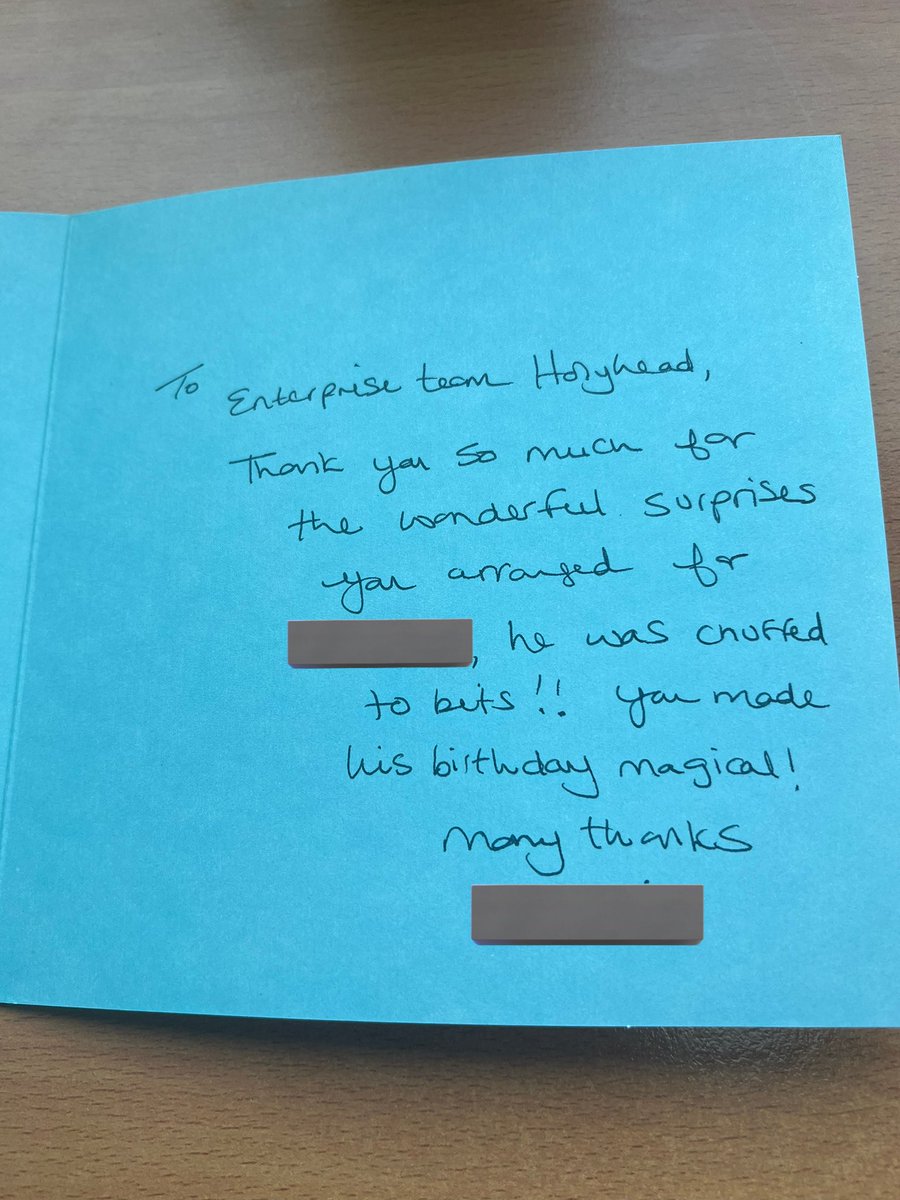 To Enterprise team Holyhead,
Thank you so much for
the wonderful surprises
you arranged for
, he was chuffed
to bits!! You made
his birthday magical!
Many thanks